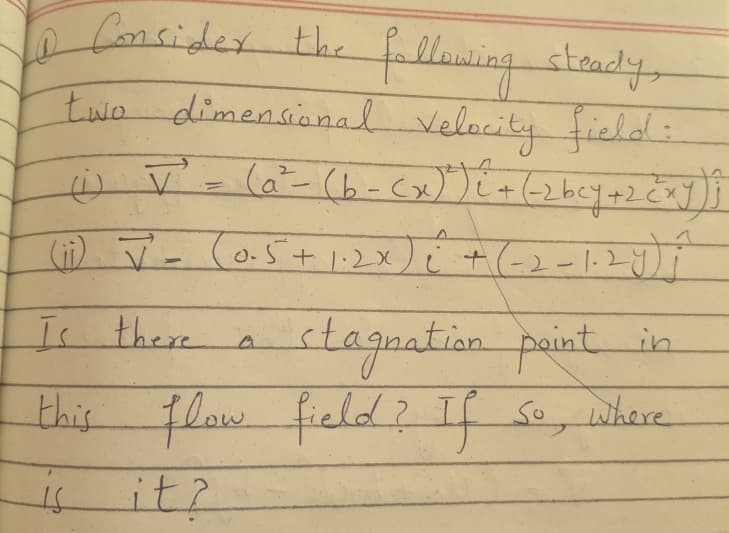 ① Consider the following steady,
two dimensional velocity field:
(i) V⃗ = (a² - (b - cx)²) î + (-2bcy + 2c²xy) ĵ
(ii) V⃗ = (0.5 + 1.2x) î + (-2 - 1.2y) ĵ
Is there a stagnation point in
this flow field? If so, where
is it?